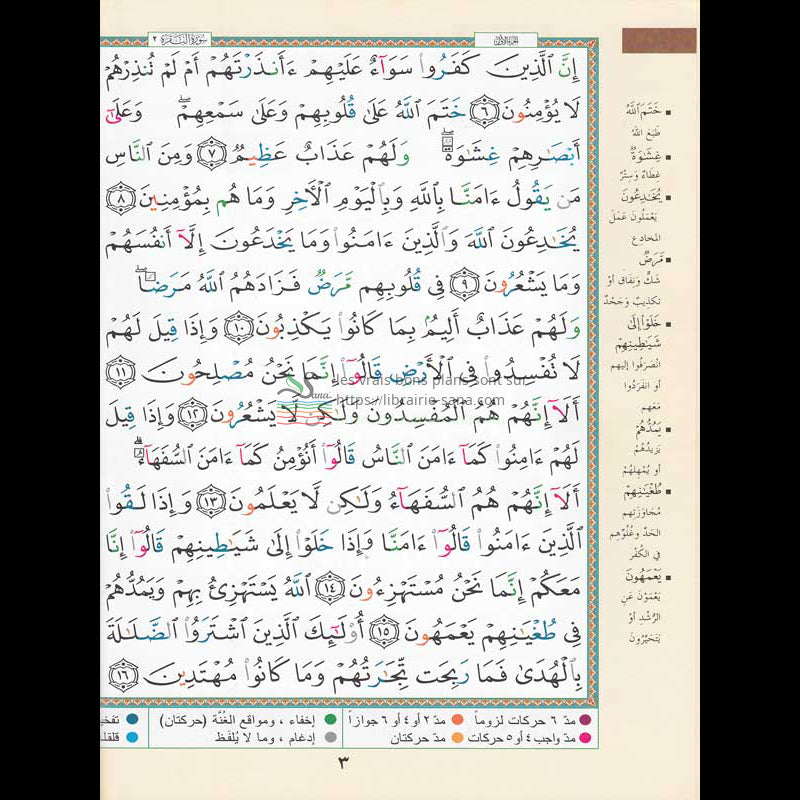 سورة البقرة ٢
الجزء الأول
إِنَّ ٱلَّذِينَ كَفَرُوا۟ سَوَآءٌ عَلَيْهِمْ ءَأَنذَرْتَهُمْ أَمْ لَمْ تُنذِرْهُمْ
لَا يُؤْمِنُونَ ٦ خَتَمَ ٱللَّهُ عَلَىٰ قُلُوبِهِمْ وَعَلَىٰ سَمْعِهِمْ ۖ وَعَلَىٰٓ
أَبْصَٰرِهِمْ غِشَٰوَةٌ ۖ وَلَهُمْ عَذَابٌ عَظِيمٌ ٧ وَمِنَ ٱلنَّاسِ
مَن يَقُولُ ءَامَنَّا بِٱللَّهِ وَبِٱلْيَوْمِ ٱلْءَاخِرِ وَمَا هُم بِمُؤْمِنِينَ ٨
يُخَٰدِعُونَ ٱللَّهَ وَٱلَّذِينَ ءَامَنُوا۟ وَمَا يَخْدَعُونَ إِلَّآ أَنفُسَهُمْ
وَمَا يَشْعُرُونَ ٩ فِى قُلُوبِهِم مَّرَضٌ فَزَادَهُمُ ٱللَّهُ مَرَضًا ۖ
وَلَهُمْ عَذَابٌ أَلِيمٌۢ بِمَا كَانُوا۟ يَكْذِبُونَ ١٠ وَإِذَا قِيلَ لَهُمْ
لَا تُفْسِدُوا۟ فِى ٱلْأَرْضِ قَالُوٓا۟ إِنَّمَا نَحْنُ مُصْلِحُونَ ١١
أَلَآ إِنَّهُمْ هُمُ ٱلْمُفْسِدُونَ وَلَٰكِن لَّا يَشْعُرُونَ ١٢ وَإِذَا قِيلَ
لَهُمْ ءَامِنُوا۟ كَمَآ ءَامَنَ ٱلنَّاسُ قَالُوٓا۟ أَنُؤْمِنُ كَمَآ ءَامَنَ ٱلسُّفَهَآءُ ۗ
أَلَآ إِنَّهُمْ هُمُ ٱلسُّفَهَآءُ وَلَٰكِن لَّا يَعْلَمُونَ ١٣ وَإِذَا لَقُوا۟
ٱلَّذِينَ ءَامَنُوا۟ قَالُوٓا۟ ءَامَنَّا وَإِذَا خَلَوْا۟ إِلَىٰ شَيَٰطِينِهِمْ قَالُوٓا۟ إِنَّا
مَعَكُمْ إِنَّمَا نَحْنُ مُسْتَهْزِءُونَ ١٤ ٱللَّهُ يَسْتَهْزِئُ بِهِمْ وَيَمُدُّهُمْ
فِى طُغْيَٰنِهِمْ يَعْمَهُونَ ١٥ أُو۟لَٰٓئِكَ ٱلَّذِينَ ٱشْتَرَوُا۟ ٱلضَّلَٰلَةَ
بِٱلْهُدَىٰ فَمَا رَبِحَت تِّجَٰرَتُهُمْ وَمَا كَانُوا۟ مُهْتَدِينَ ١٦
خَتَمَ ٱللَّهُ
طَبَعَ اللهُ
غِشَٰوَةٌ
غطاءٌ وسِتْرٌ
يُخَٰدِعُونَ
يَعْمَلُونَ عَمَلَ
المخادِع
مَّرَضٌ
شَكٌّ ونِفَاق أوْ
تكذيبٌ وَجَحْدٌ
خَلَوْا۟ إِلَىٰ
شَيَٰطِينِهِمْ
انْصَرَفُوا إليهم
أو انفَرَدُوا
مَعَهم
يَمُدُّهُمْ
يَزيدُهُمْ
أو يُمْهِلُهُمْ
طُغْيَٰنِهِمْ
مُجَاوَزَتِهِم
الحَدَّ وغُلُوِّهِم
فِي الكُفْرِ
يَعْمَهُونَ
يَعْمَوْنَ عَنِ
الرُّشْدِ أوْ
يَتَحَيَّرُونَ
les vrais bons plans sont sur
Sana
https://librairie-sana.com
مدّ ٦ حركات لزوماً
مدّ ٢ أو ٤ أو ٦ جوازاً
إخفاء، ومواقع الغُنَّة (حركتان)
تفخي
مدّ واجب ٤ أو ٥ حركات
مدّ حركتان
إدغام، وما لا يُلفَظ
قلقلة
٣